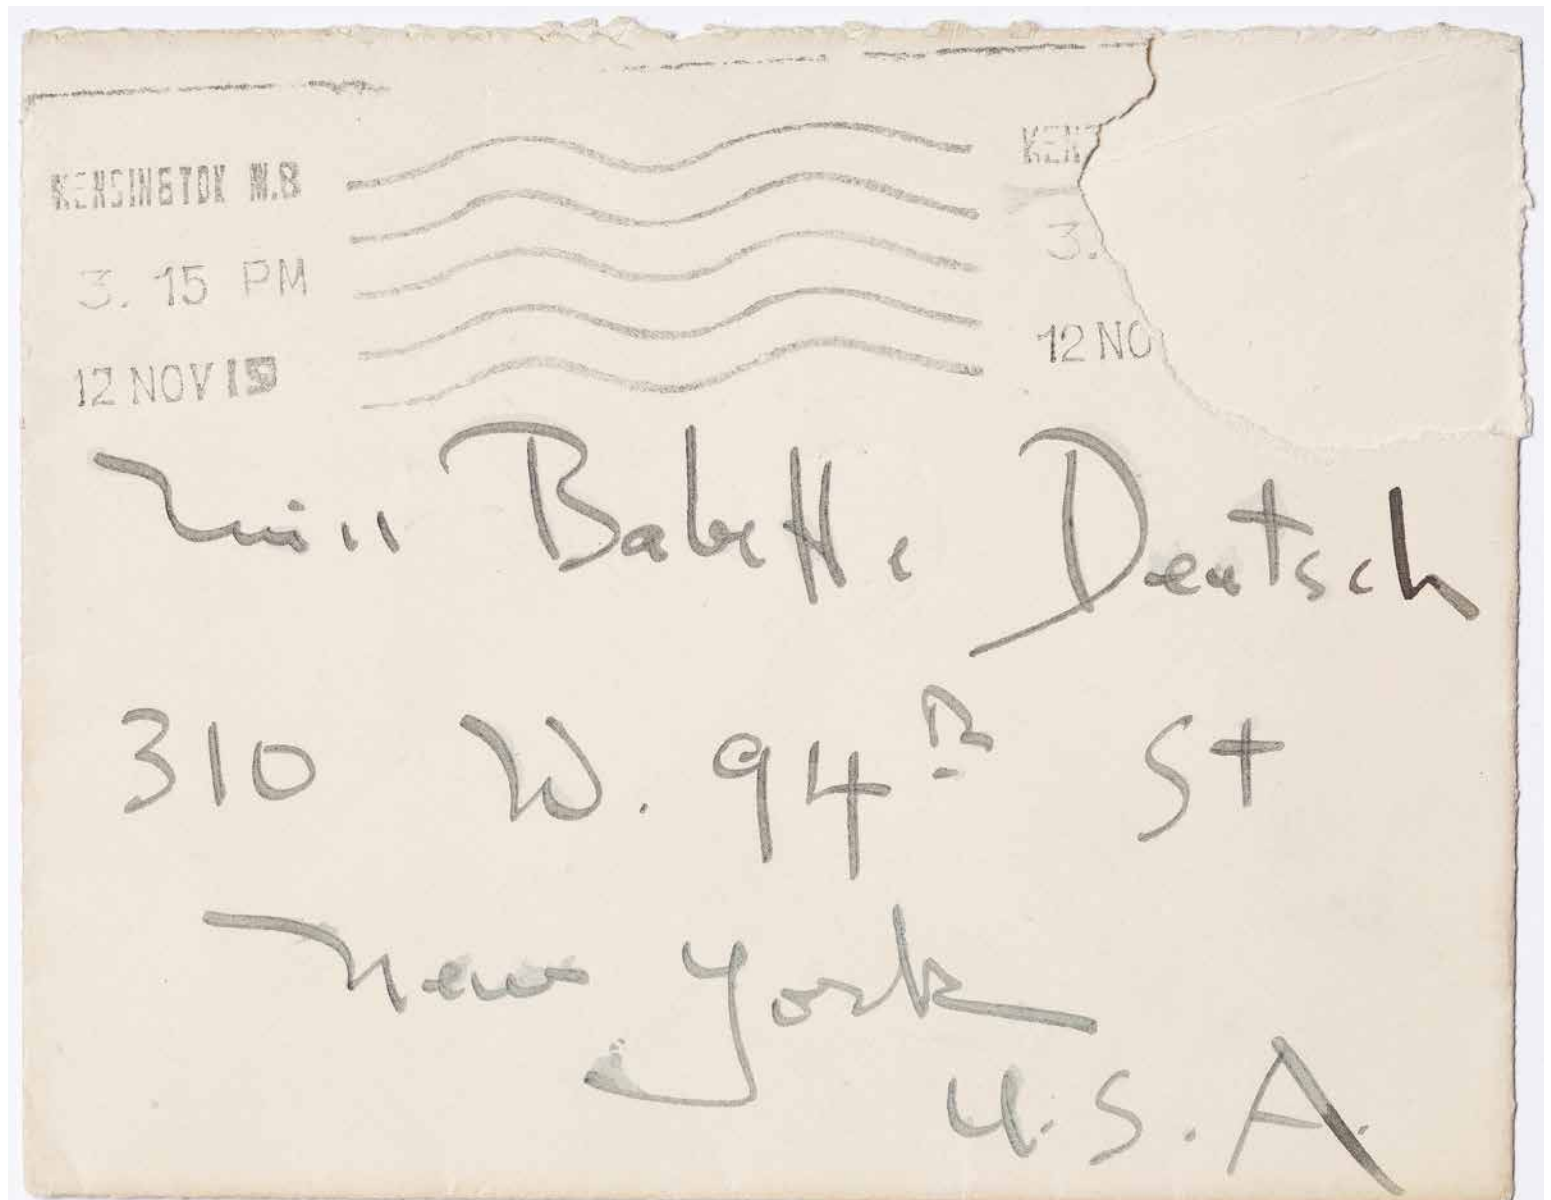 KENSINGTON W.8
3. 15 PM
12 NOV 15
KEN
3.
12 NO
Miss Babette Deutsch
310 W. 94th St
New York
U.S.A.